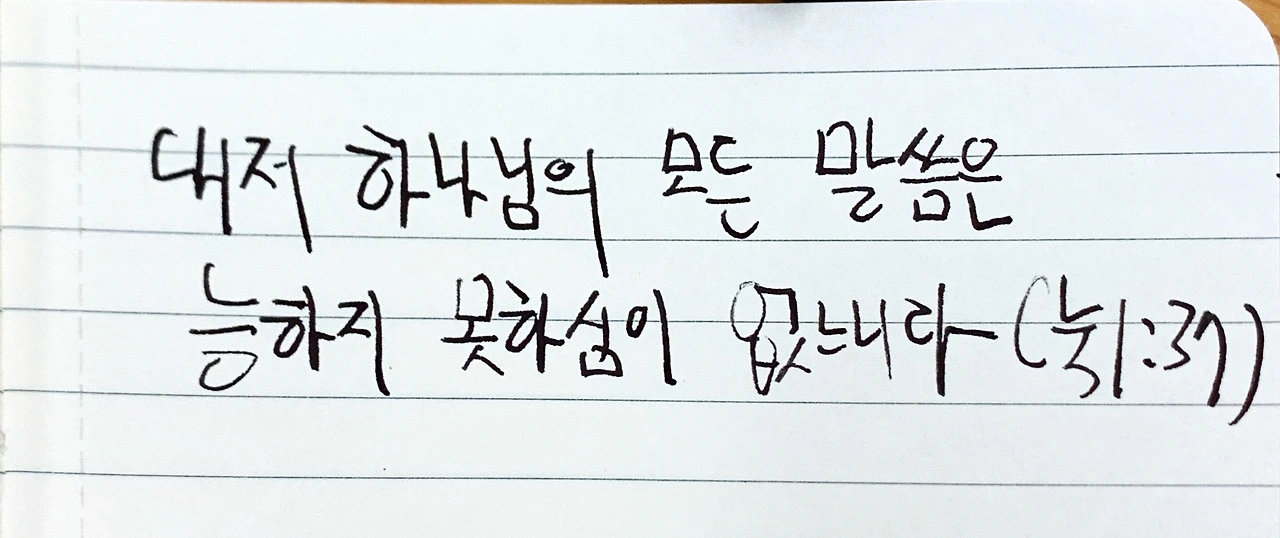 대저 하나님의 모든 말씀은
능하지 못하심이 없느니라 (눅1:37)